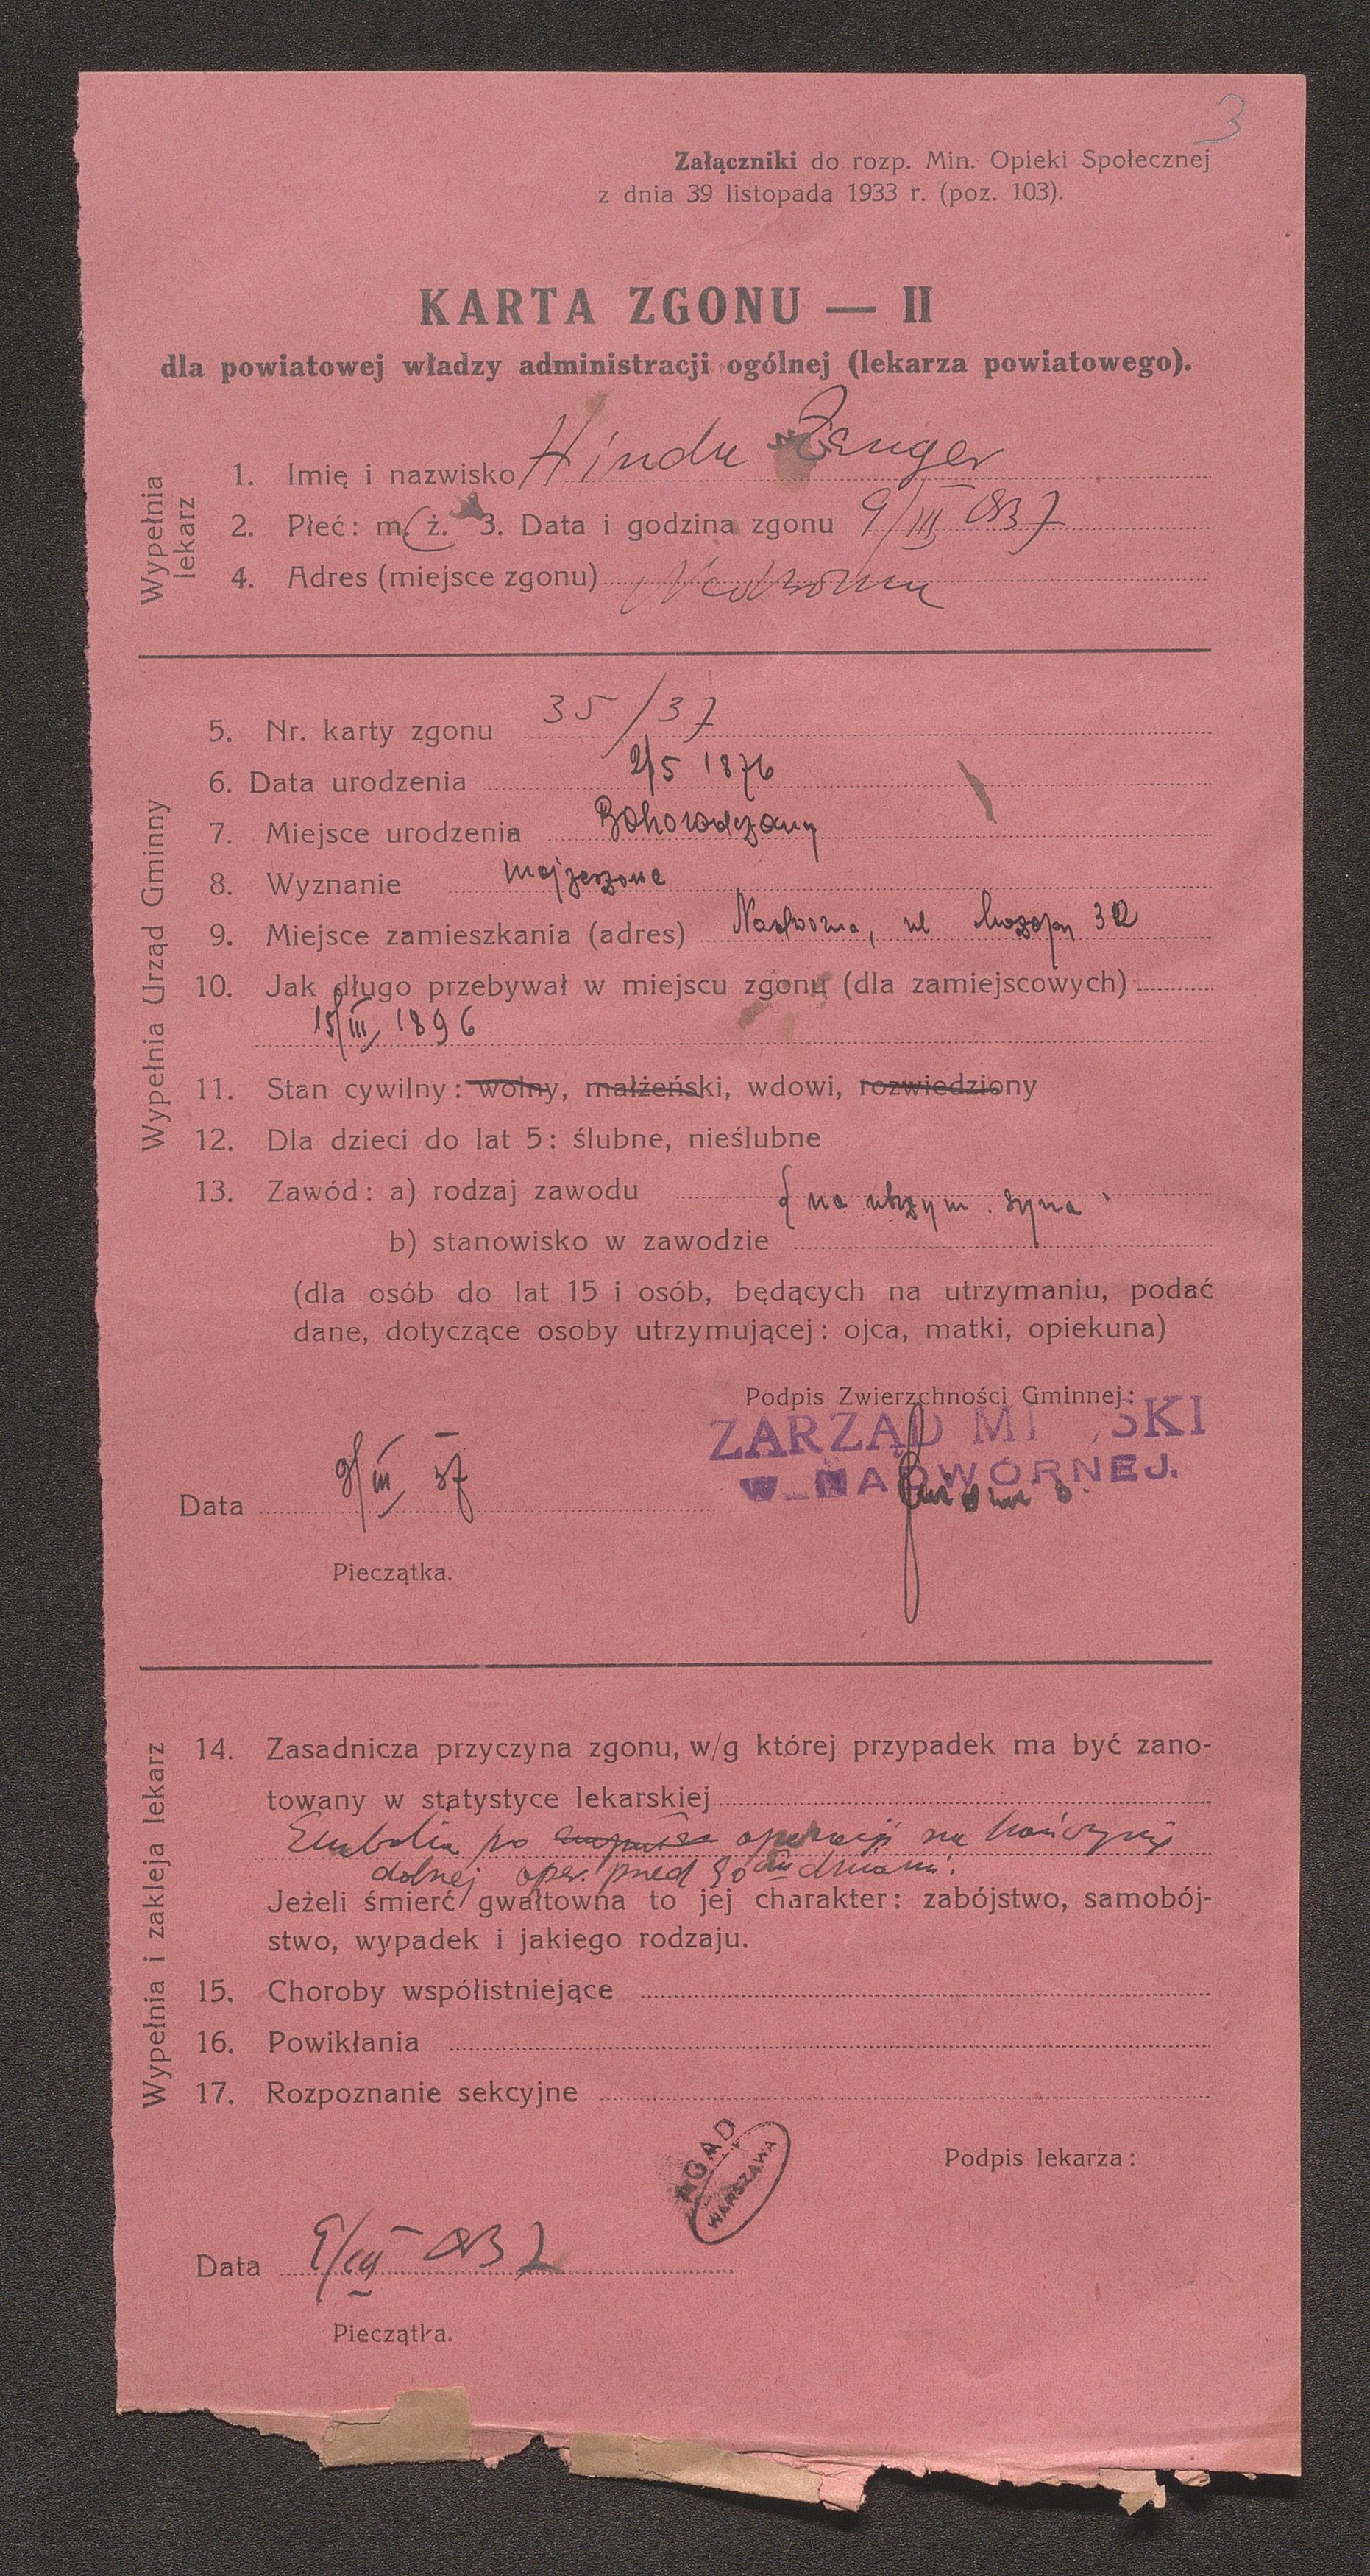 3
Załączniki do rozp. Min. Opieki Społecznej
z dnia 39 listopada 1933 r. (poz. 103).
KARTA ZGONU — II
dla powiatowej władzy administracji ogólnej (lekarza powiatowego).
Wypełnia lekarz
1. Imię i nazwisko Hinda Zenger
2. Płeć: m. ż. 3. Data i godzina zgonu 9/III 937
4. Adres (miejsce zgonu) Nadwórna
Wypełnia Urząd Gminny
5. Nr. karty zgonu 35/37
6. Data urodzenia 2/5 1876
7. Miejsce urodzenia Bohorodczany
8. Wyznanie mojżeszowe
9. Miejsce zamieszkania (adres) Nadwórna, ul 32
10. Jak długo przebywał w miejscu zgonu (dla zamiejscowych)
15/III 1896
11. Stan cywilny: wolny, małżeński, wdowi, rozwiedziony
12. Dla dzieci do lat 5: ślubne, nieślubne
13. Zawód: a) rodzaj zawodu na utrzym. syna
b) stanowisko w zawodzie
(dla osób do lat 15 i osób, będących na utrzymaniu, podać
dane, dotyczące osoby utrzymującej: ojca, matki, opiekuna)
Podpis Zwierzchności Gminnej:
ZARZĄD MI SKI
W NADWÓRNEJ.
Data 9/III 37
Pieczątka.
Wypełnia i zakleja lekarz
14. Zasadnicza przyczyna zgonu, w/g której przypadek ma być zano-
towany w statystyce lekarskiej
Embolia po operacji na kończynie
dolnej oper. przed dniami.
Jeżeli śmierć gwałtowna to jej charakter: zabójstwo, samobój-
stwo, wypadek i jakiego rodzaju.
15. Choroby współistniejące
16. Powikłania
17. Rozpoznanie sekcyjne
AGAD
WARSZAWA
Podpis lekarza:
Data 9/III 937
Pieczątka.